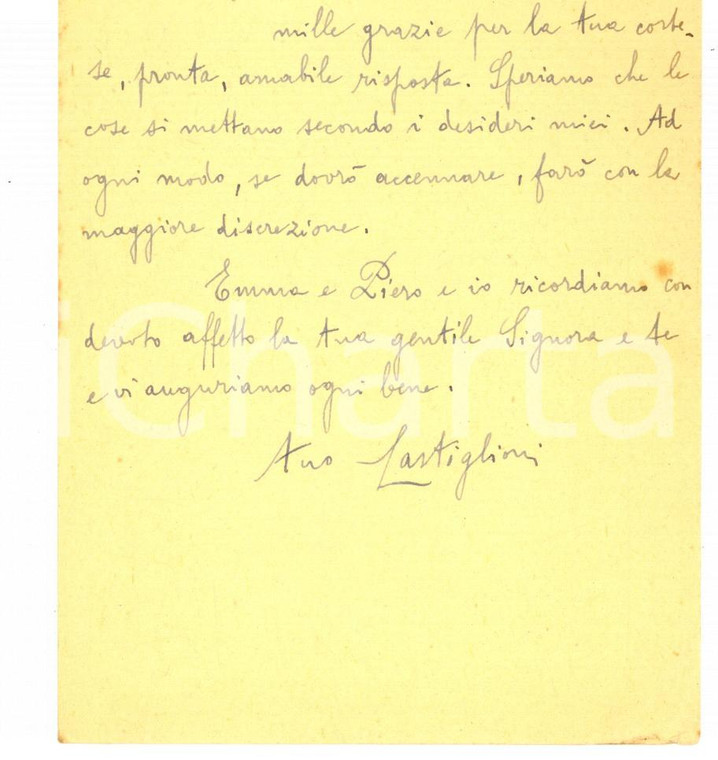 mille grazie per la tua corte-
se, pronta, amabile risposta. Speriamo che le
cose si mettano secondo i desideri miei. Ad
ogni modo, se dovrò accennare, farò con la
maggiore discrezione.
Emma e Piero e io ricordiamo con
devoto affetto la tua gentile Signora e te
e vi auguriamo ogni bene.
tuo Castiglioni
iCharta